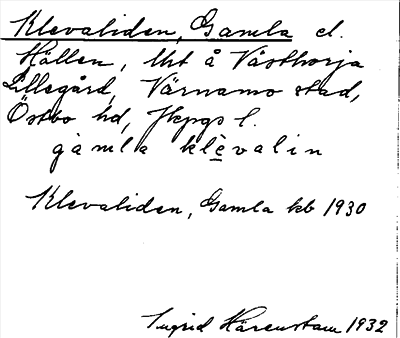 Klevaliden, Gamla el.
Hällen, lht å Västhorja
Lillegård, Värnamo stad,
Östbo hd, Jkpgs l.
gàmla klèvalin
Klevaliden, Gamla kb 1930
Ingrid Härenstam 1932